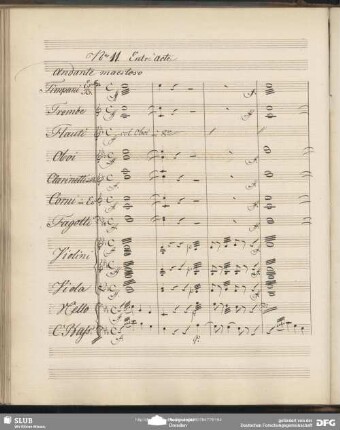 No 11 Entr'acte
Andante maestoso
Timpani
Trombe
Flauti
col Oboi
Oboi
Clarinetti
Corni in Es
Fagotti
Violini
Viola
Vcello
C. Bass
SLUB
Wir führen Wissen.
Dresden
gefördert von der
Deutschen Forschungsgemeinschaft
DFG